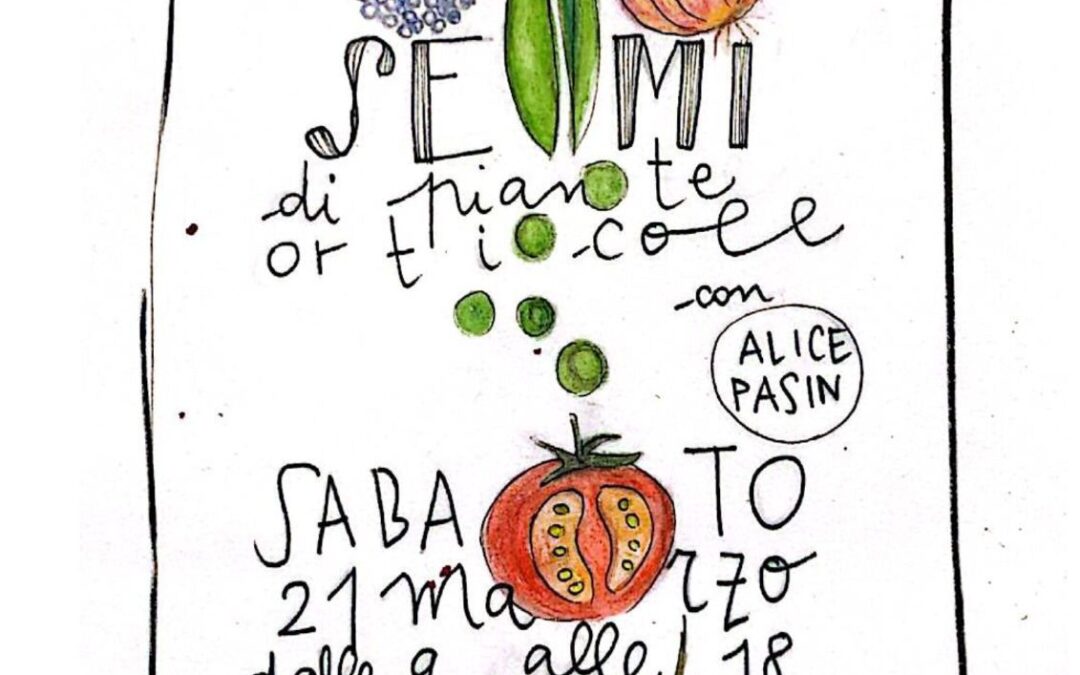 SEMI
di piante
orticole
con
ALICE
PASIN
SABATO
21 marzo
dalle 9 alle 18